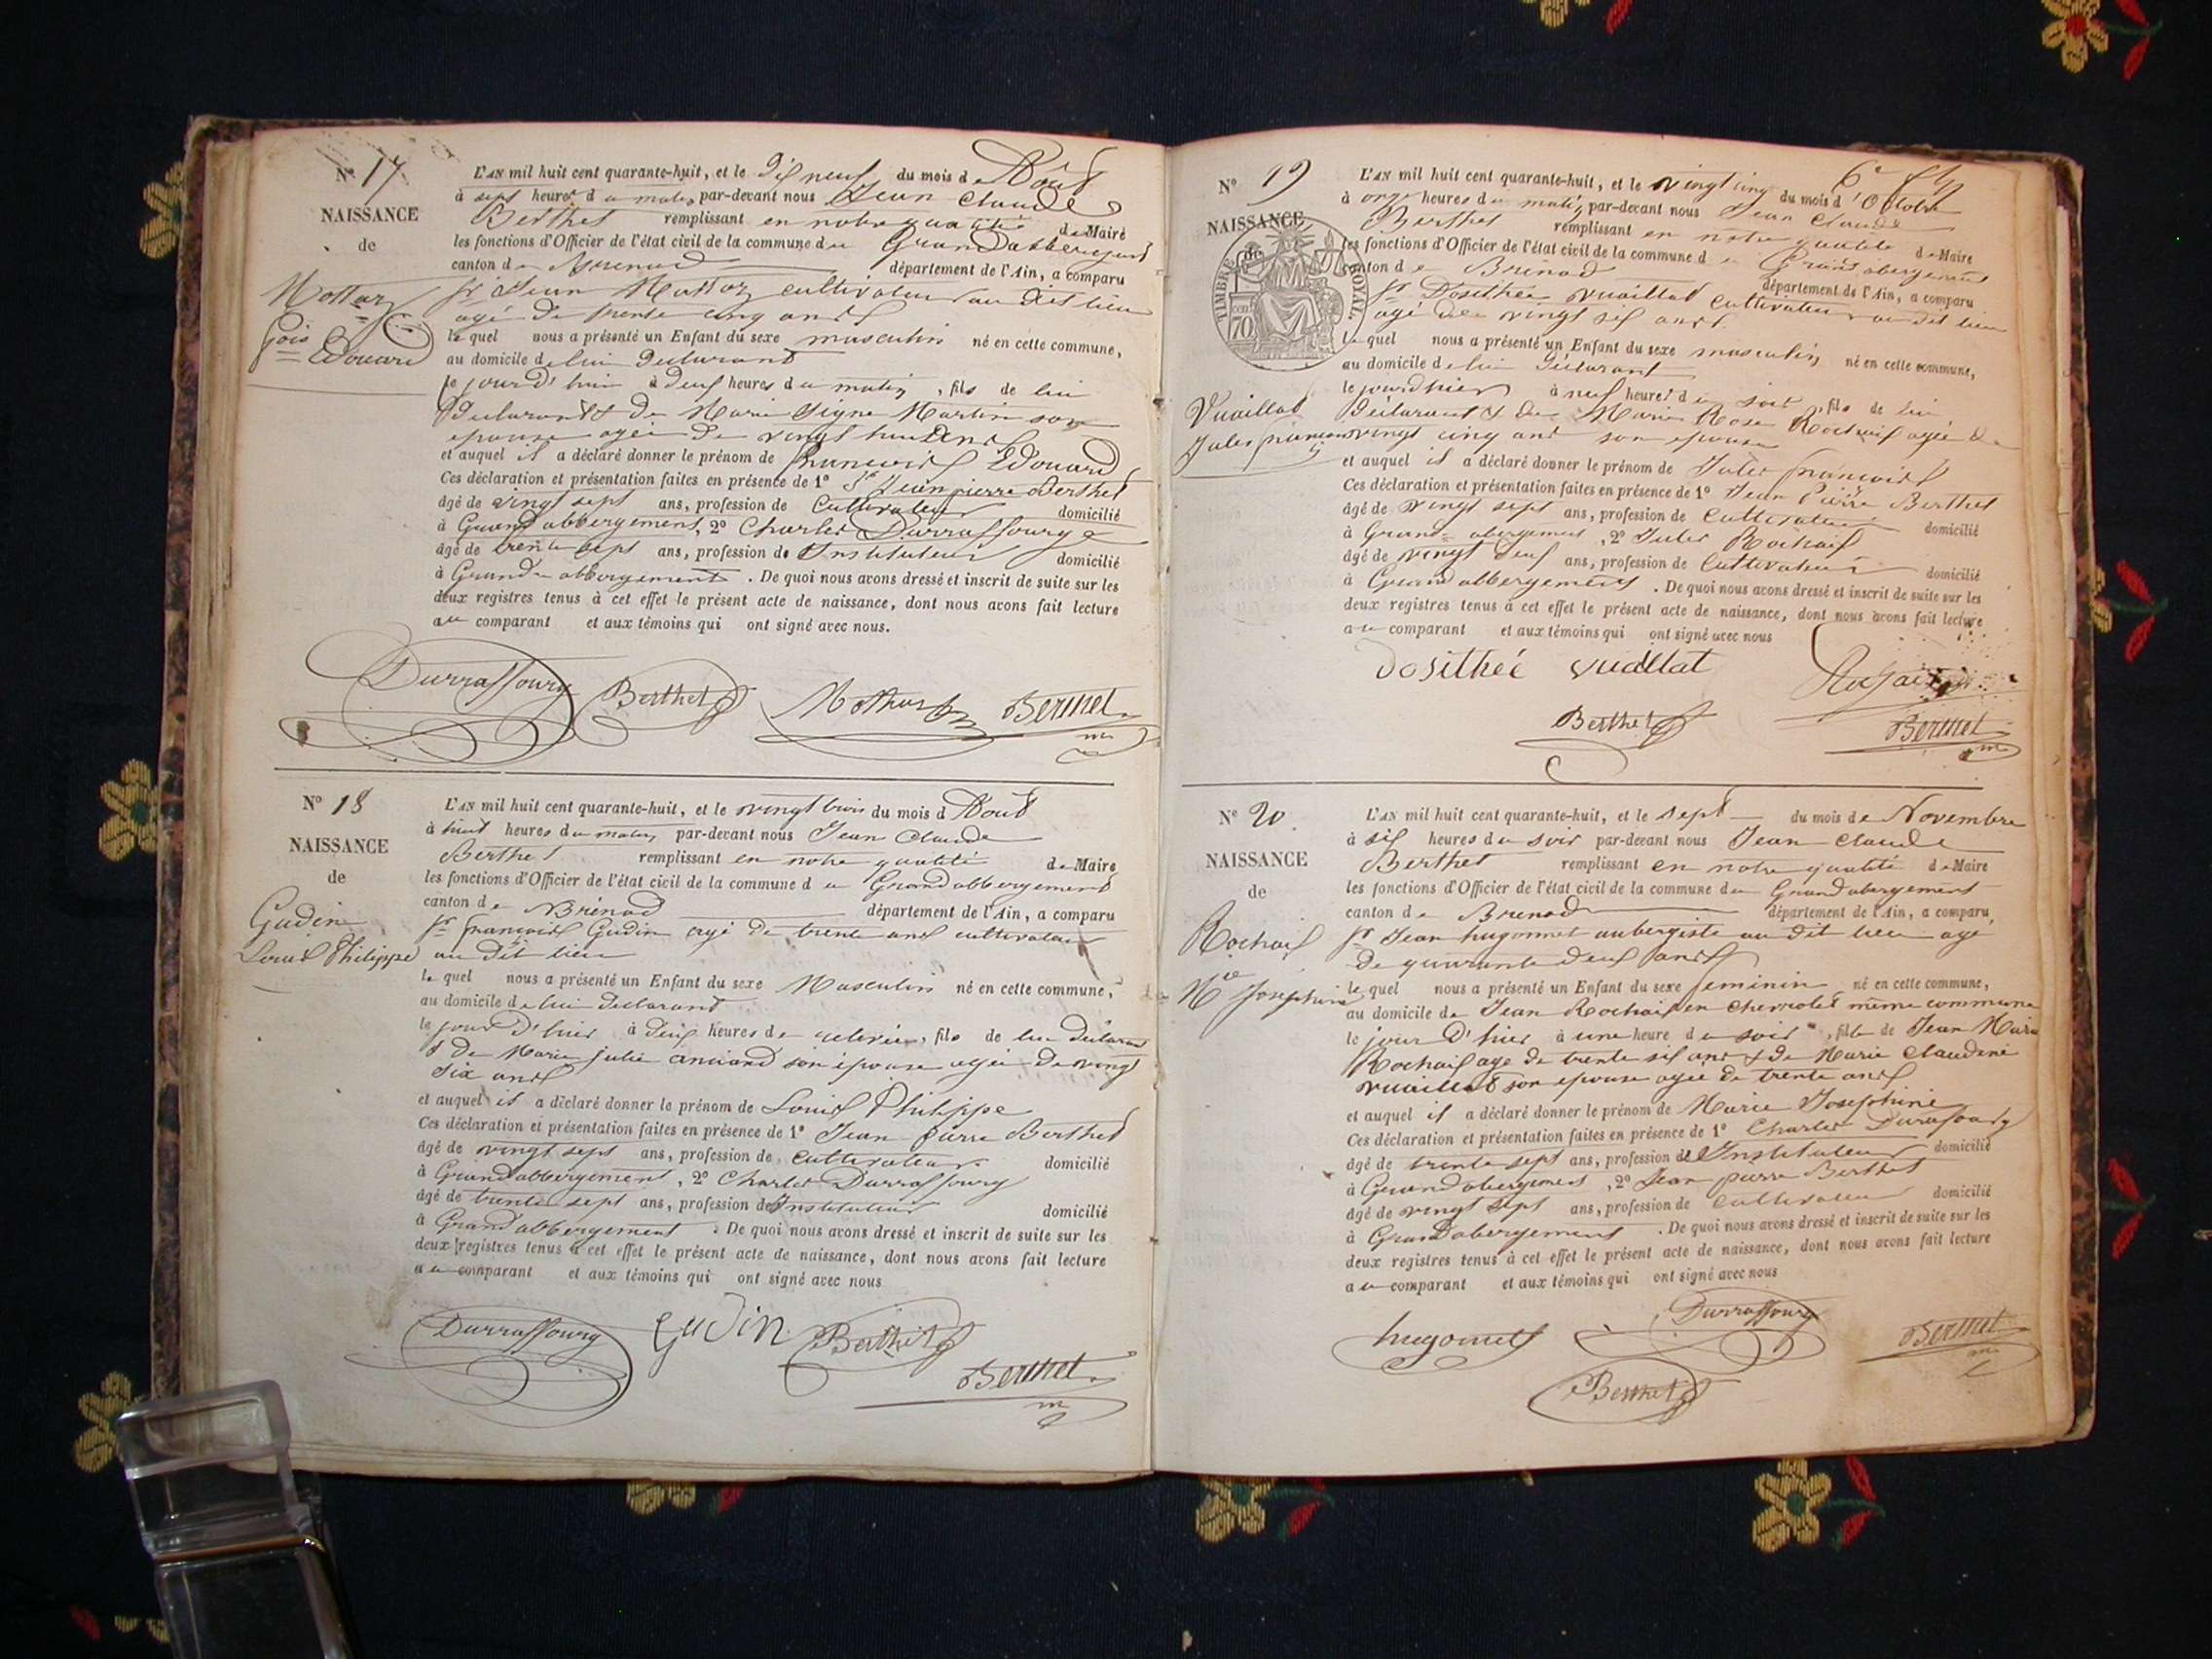 N° 17
NAISSANCE
de
Mottaz
Fçois Edouard
L'AN mil huit cent quarante-huit, et le dix neuf du mois d Août
à sept heures du matin par-devant nous Jean Claude
Berthet remplissant en notre qualité de Maire
les fonctions d'Officier de l'état civil de la commune du Grand abbergement
canton de Brenod département de l'Ain, a comparu
sr Jean Mottaz cultivateur au dit lieu
agé de trente cinq ans
lequel nous a présenté un Enfant du sexe masculin né en cette commune,
au domicile de lui declarant
le jour d'hui à deux heures du matin, fils de lui
declarant & de Marie Martin son
epouse agée de vingt huit ans
et auquel il a déclaré donner le prénom de francois Edouard
Ces déclaration et présentation faites en présence de 1° Sr Jean pierre Berthet
âgé de vingt sept ans, profession de Cultivateur domicilié
à Grand abbergement, 2° Charles Durraffourg
âgé de trente sept ans, profession de Instituteur domicilié
à Grand abbergement. De quoi nous avons dressé et inscrit de suite sur les
deux registres tenus à cet effet le présent acte de naissance, dont nous avons fait lecture
au comparant et aux témoins qui ont signé avec nous.
Durraffourg Berthet Mottaz Berthet
N° 18
NAISSANCE
de
Gudin
Louis Philippe
L'AN mil huit cent quarante-huit, et le vingt trois du mois d Août
à huit heures du matin par-devant nous Jean Claude
Berthet remplissant en notre qualité de Maire
les fonctions d'Officier de l'état civil de la commune du Grand abbergement
canton de Brénod département de l'Ain, a comparu
sr francois Gudin agé de trente ans cultivateur
au dit lieu
lequel nous a présenté un Enfant du sexe Masculin né en cette commune,
au domicile de lui declarant
le jour d'hier à dix heures de relevée, fils de lui déclarant
& de Marie julie son épouse agée de vingt
six ans
et auquel il a déclaré donner le prénom de Louis Philippe
Ces déclaration et présentation faites en présence de 1° Jean pierre Berthet
âgé de vingt sept ans, profession de cultivateur domicilié
à Grand abbergement, 2° Charles Durraffourg
âgé de trente sept ans, profession de Instituteur domicilié
à Grand abbergement. De quoi nous avons dressé et inscrit de suite sur les
deux registres tenus à cet effet le présent acte de naissance, dont nous avons fait lecture
au comparant et aux témoins qui ont signé avec nous
Durraffourg Gudin Berthet
Berthet
6e
N° 19
NAISSANCE
TIMBRE ROYAL
70
Vuaillat
Jules francois
L'AN mil huit cent quarante-huit, et le vingt cinq du mois d'Octobre
à onze heures du matin par-devant nous Jean Claude
Berthet remplissant en notre qualité de Maire
les fonctions d'Officier de l'état civil de la commune du Grand abergement
canton de Brénod département de l'Ain, a comparu
sr Dosithée Vuaillat cultivateur au dit lieu
agé de vingt six ans
lequel nous a présenté un Enfant du sexe masculin né en cette commune,
au domicile de lui déclarant
le jourdhier à neuf heures du soir, fils de lui
déclarant & de Marie Rose Rochaix agée de
vingt cinq ans son epouse
et auquel il a déclaré donner le prénom de Jules francois
Ces déclaration et présentation faites en présence de 1° Jean Pierre Berthet
âgé de vingt sept ans, profession de Cultivateur domicilié
à Grand abergement, 2° Jules Rochaix
âgé de vingt deux ans, profession de Cultivateur domicilié
à Grand abbergement. De quoi nous avons dressé et inscrit de suite sur les
deux registres tenus à cet effet le présent acte de naissance, dont nous avons fait lecture
au comparant et aux témoins qui ont signé avec nous
Dosithée vuaillat Rochaix
Berthet Berthet
N° 20
NAISSANCE
de
Rochaix
Mie Josephine
L'AN mil huit cent quarante-huit, et le sept du mois de Novembre
à six heures du soir par-devant nous Jean Claude
Berthet remplissant en notre qualité de Maire
les fonctions d'Officier de l'état civil de la commune du Grand abergement
canton de Brenod département de l'Ain, a comparu,
sr Jean hugonnet aubergiste au dit lieu agé
de quarante deux ans
lequel nous a présenté un Enfant du sexe feminin né en cette commune,
au domicile de Jean Rochaix en même commune
le jour d'hier à une heure du soir, fille de Jean Marie
Rochaix age de trente six ans & de Marie Claudine
vuaillat son epouse agée de trente ans
et auquel il a déclaré donner le prénom de Marie Josephine
Ces déclaration et présentation faites en présence de 1° Charles Durafourg
âgé de trente sept ans, profession de Instituteur domicilié
à Grand abergement, 2° Jean pierre Berthet
âgé de vingt sept ans, profession de cultivateur domicilié
à Grand abergement. De quoi nous avons dressé et inscrit de suite sur les
deux registres tenus à cet effet le présent acte de naissance, dont nous avons fait lecture
au comparant et aux témoins qui ont signé avec nous
hugonnet Durraffourg Berthet
Berthet